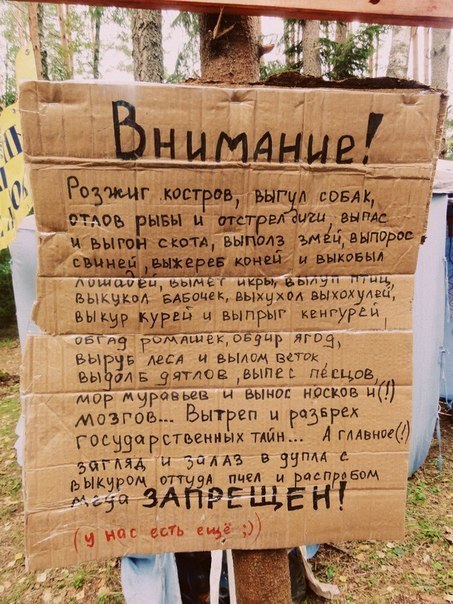 Внимание!
Розжиг костров, выгул собак,
отлов рыбы и отстрел дичи, выпас
и выгон скота, выполз змей, выпорос
свиней, выжереб коней и выкобыл
лошадей, вымет икры, вылуп птиц,
выкукол бабочек, выхухол выхохулей,
выкур курей и выпрыг кенгурей,
обгад ромашек, обдир ягод,
выруб леса и вылом веток
выдолб дятлов, выпес пёсцов,
мор муравьев и вынос носков и(!)
мозгов... Вытреп и разбрех
государственных тайн... А главное(!)
загляд и залаз в дупла с
выкуром оттуда пчел и распробом
меда ЗАПРЕЩЕН!
(у нас есть ещё ;))